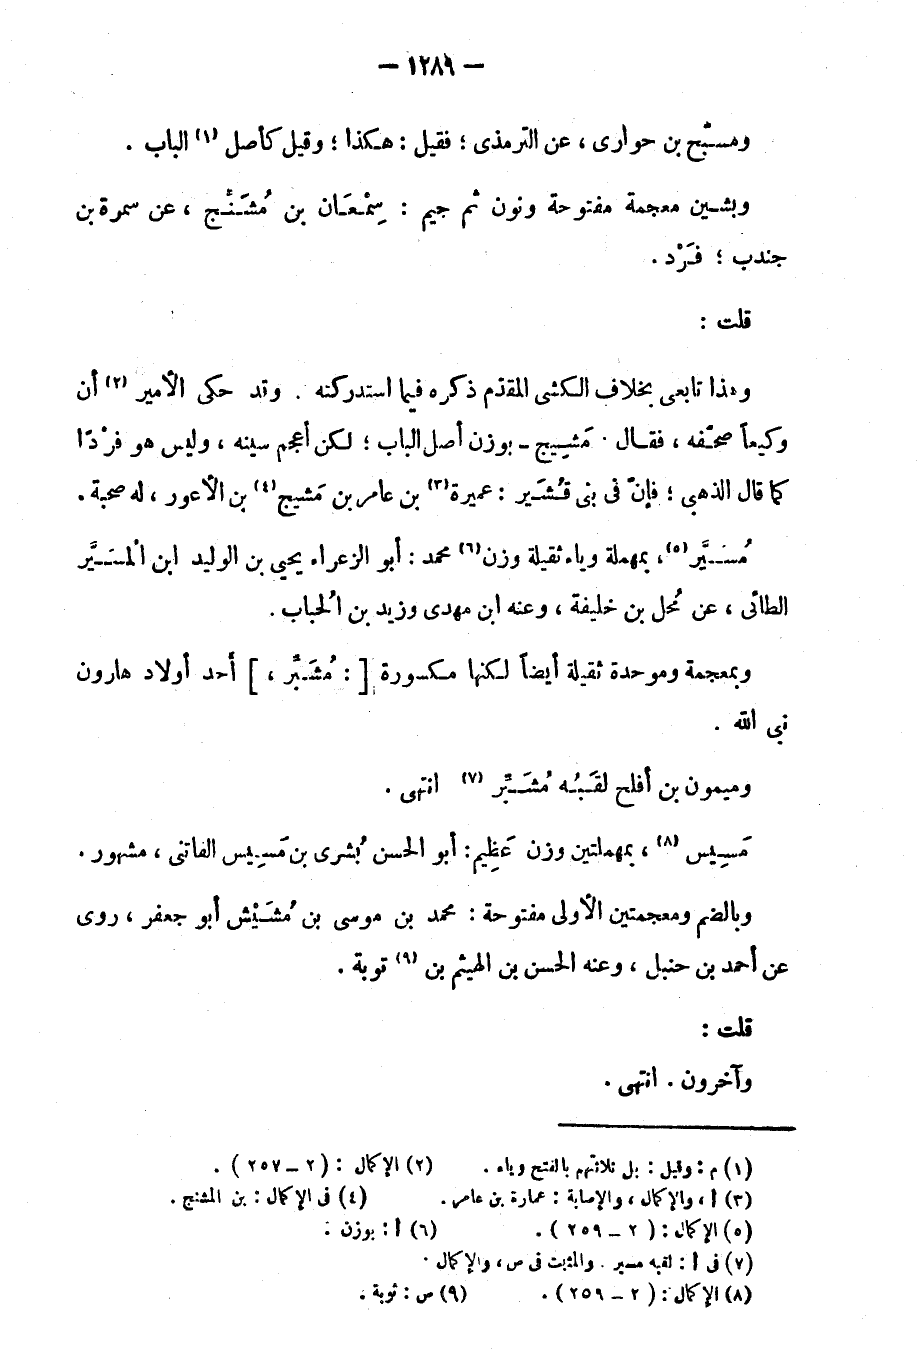 — ١٢٨٩ —
ومسَبِّح بن حوارى ، عن الترمذى ؛ فقيل : هكذا ؛ وقيل كأصل (١) الباب .
وبشين معجمة مفتوحة ونون ثم جيم : سِمْعَان بن مُشَنَّج ، عن سمرة بن
جندب ؛ فَرْد .
قلت :
وهذا تابعى بخلاف الكشى المقدّم ذكره فيما استدركته . وقد حكى الأمير (٢) أن
وكيعاً صحّفه ، فقال : مَشِيج ـ بوزن أصل الباب ؛ لكن أعجم سينه ، وليس هو فردًا
كما قال الذهبى ؛ فإنّ فى بنى قُشَير : عميرة (٣) بن عامر بن مَشيج (٤) بن الأعور ، له صحبة .
مُسَيَّر (٥) ، بمهملة وياء ثقيلة وزن (٦) محمد : أبو الزعراء يحيى بن الوليد ابن الْمسَيَّر
الطائى ، عن مُحل بن خليفة ، وعنه ابن مهدى وزيد بن الُحباب .
وبمعجمة وموحدة ثقيلة أيضاً لكنها مكسورة [ : مُشَبِّر ، ] أحد أولاد هارون
نبى الله .
وميمون بن أفلح لقَبُه مُشَبِّر (٧) انتهى .
مَسِيس (٨) ، بمهملتين وزن عَظِيم : أبو الحسن بُشرى بن مَسِيس الفاتنى ، مشهور .
وبالضم ومعجمتين الأولى مفتوحة : محمد بن موسى بن مُشَيْش أبو جعفر ، روى
عن أحمد بن حنبل ، وعنه الحسن بن الهيثم بن (٩) توبة .
قلت :
وآخرون . انتهى .
(١) م : وقيل : بل ثلاثتهم بالفتح وياء . (٢) الإكمال : ( ٢ ـ ٢٥٧ ) .
(٣) أ ، والإكمال ، والإصابة : عمارة بن عامر . (٤) فى الإكمال : بن المشنج .
(٥) الإكمال : ( ٢ ـ ٢٥٩ ) . (٦) أ : بوزن .
(٧) فى أ : لقبه مسير . والمثبت فى ص ، والإكمال .
(٨) الإكمال : ( ٢ ـ ٢٥٩ ) . (٩) ص : ثوبة .